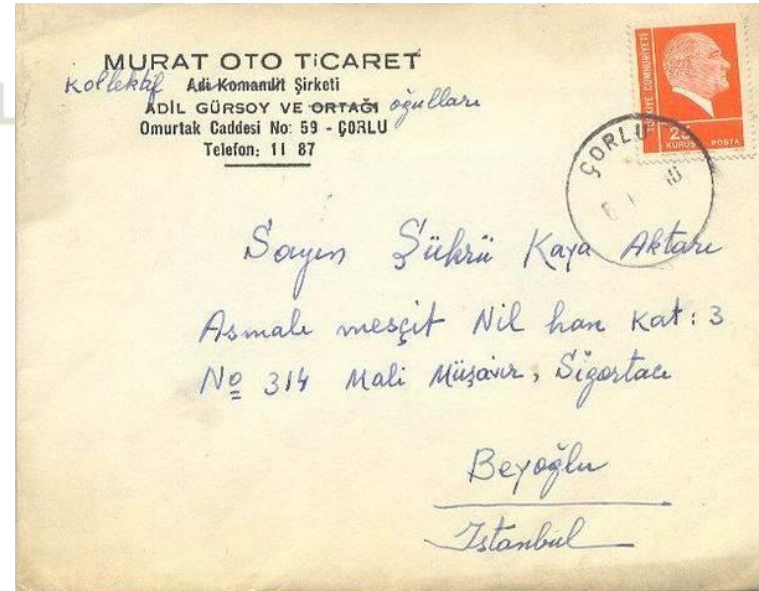 MURAT OTO TiCARET
Kollektif Adi Komandit Şirketi
ADİL GÜRSOY VE ORTAĞI oğulları
Omurtak Caddesi No: 59 - ÇORLU
Telefon: 11 87
TÜRKİYE CUMHURİYETİ
25
KURUŞ POSTA
ÇORLU
Sayın Şükrü Kaya Aktarı
Asmalı mesçit Nil han Kat: 3
No 314 Mali Müşavir, Sigortacı
Beyoğlu
İstanbul